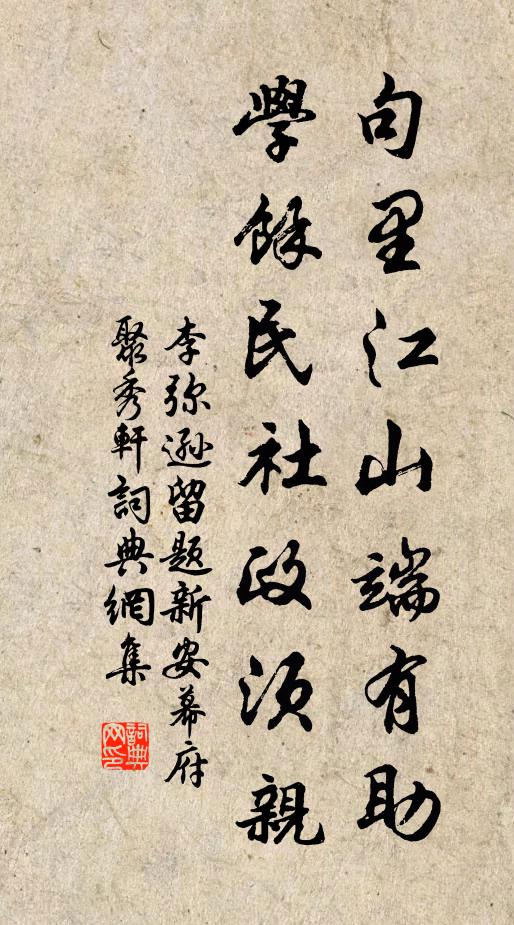 句里江山端有助
學餘民社政須親
李弥遜留題新安幕府
聚秀軒詞典網集
詞典網印